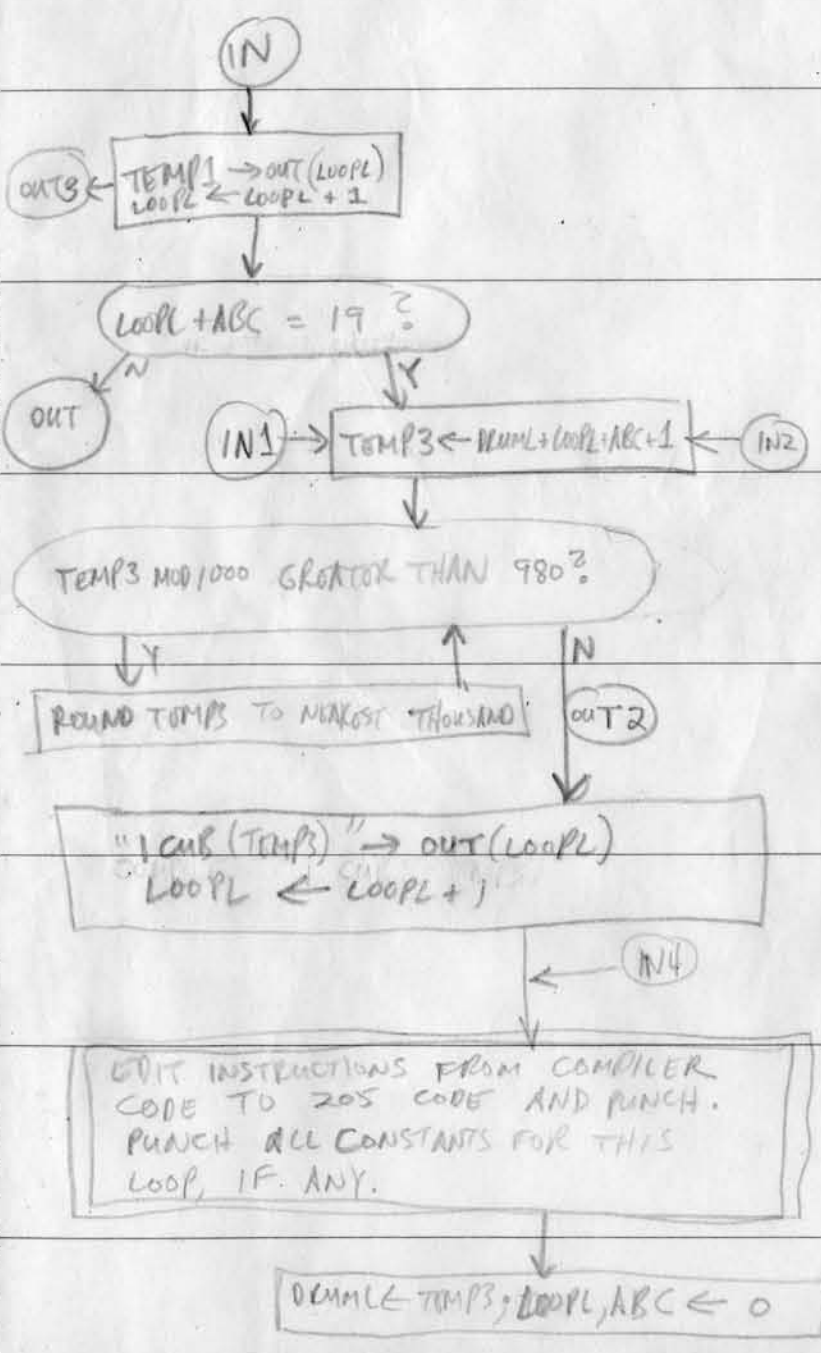 IN
OUT3
TEMP1 → OUT(LOOPL)
LOOPL ← LOOPL + 1
LOOPL + ABC = 19 ?
N
Y
OUT
IN1
TEMP3 ← DRUML+LOOPL+ABC+1
IN2
TEMP3 MOD 1000 GREATER THAN 980?
Y
N
ROUND TEMP3 TO NEAREST THOUSAND
OUT2
"1 CUB (TEMP3)" → OUT(LOOPL)
LOOPL ← LOOPL + 1
IN4
EDIT INSTRUCTIONS FROM COMPILER
CODE TO 205 CODE AND PUNCH.
PUNCH ALL CONSTANTS FOR THIS
LOOP, IF ANY.
DRUML ← TEMP3; LOOPL, ABC ← 0